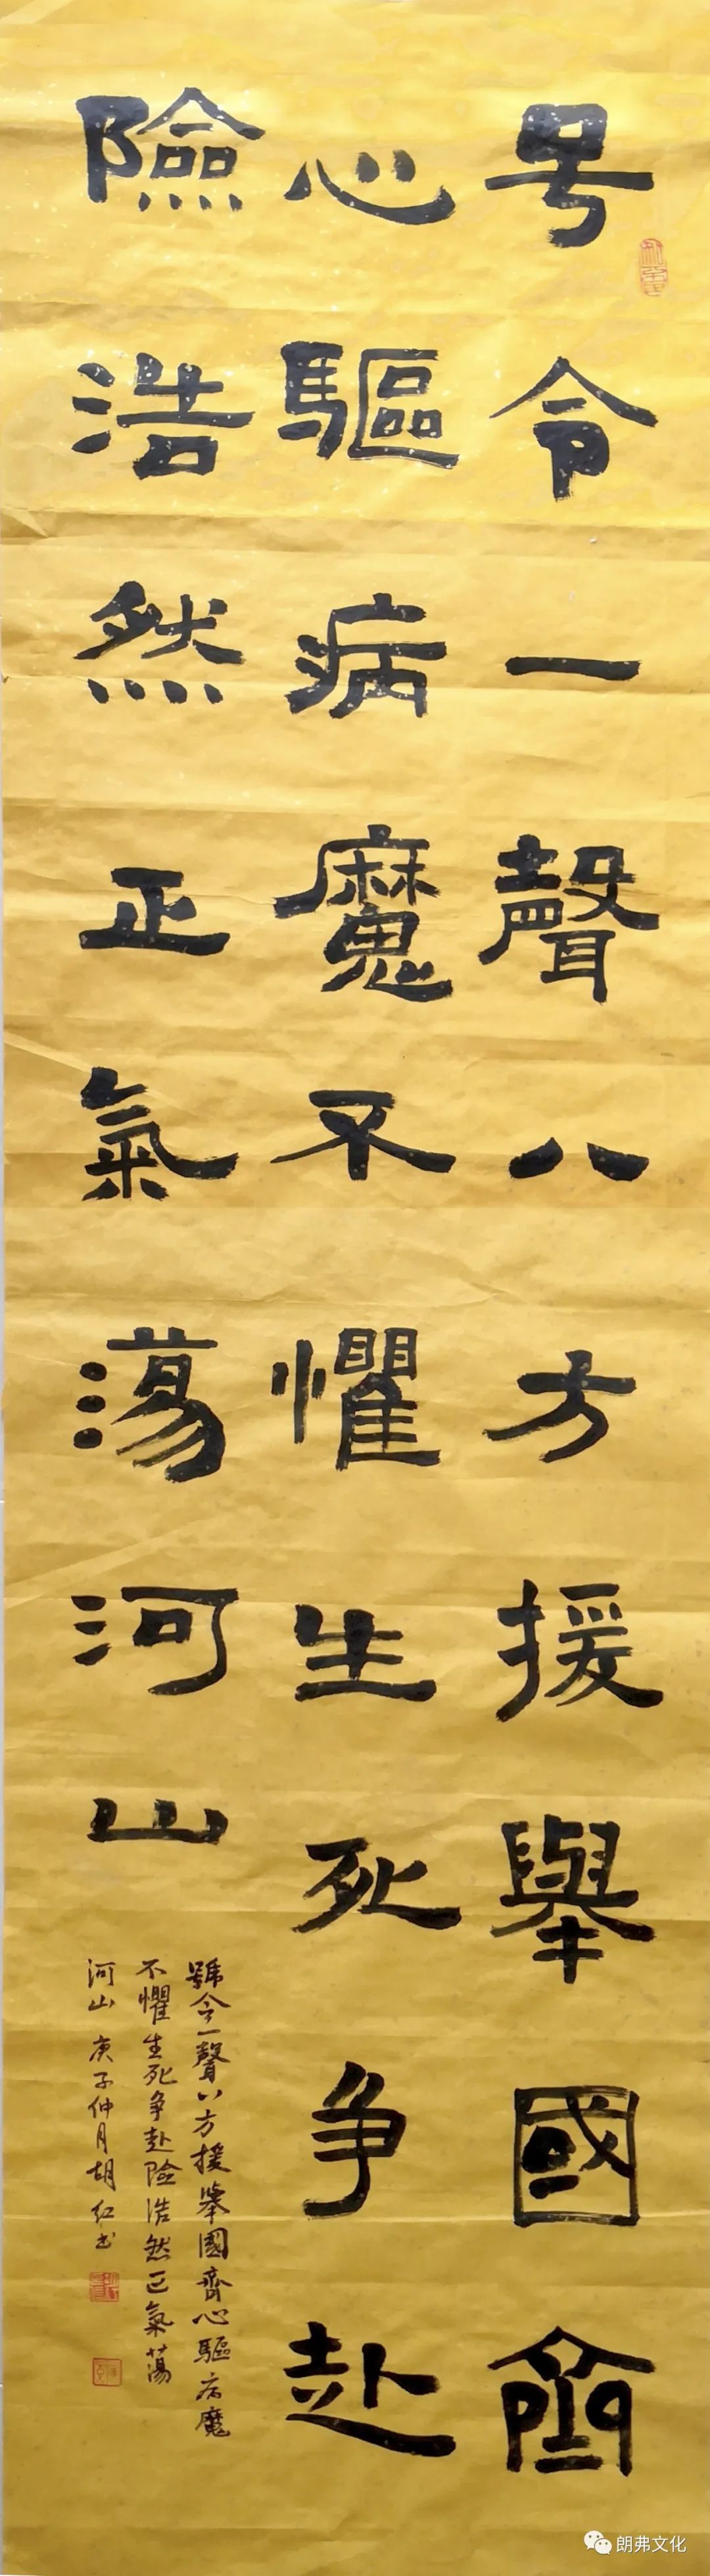 号令一聲八方援舉國齊
心驅病魔不懼生死争赴
險浩然正氣蕩河山
號令一聲八方援舉國齊心驅病魔
不懼生死争赴險浩然正氣蕩
河山 庚子仲月胡紅书
朗弗文化